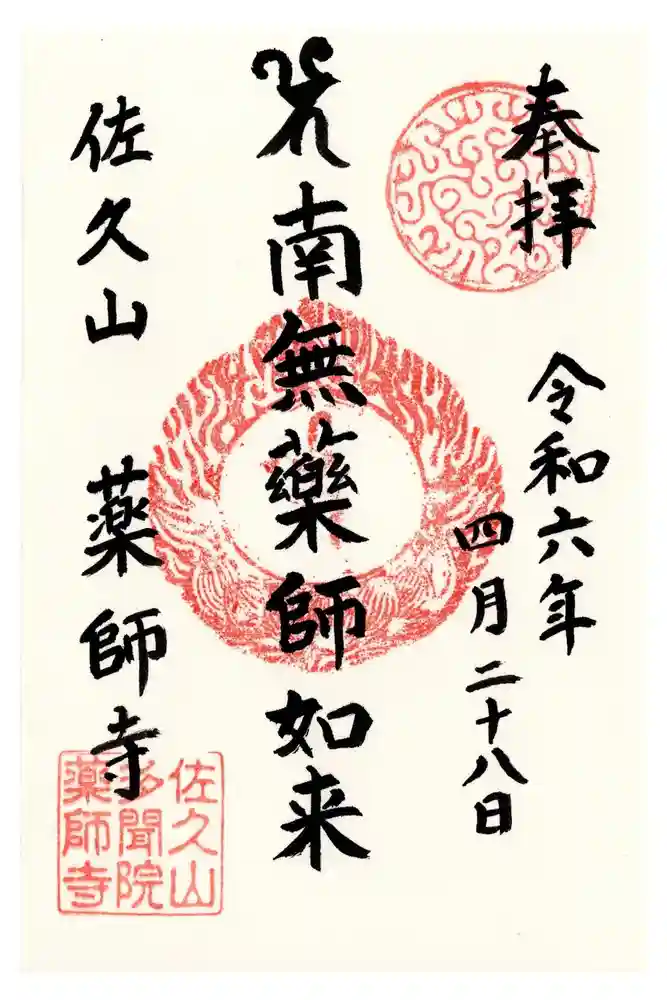 奉拝
令和六年
四月二十八日
南無藥師如来
佐久山
薬師寺
佐久山
多聞院
薬師寺